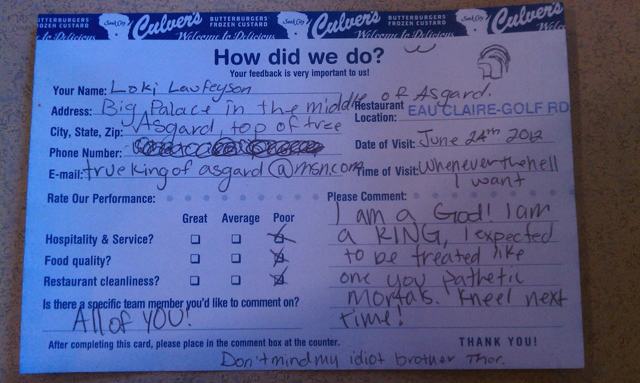 BUTTERBURGERS FROZEN CUSTARD Culver's BUTTERBURGERS FROZEN CUSTARD Culver's BUTTERBURGERS FROZEN CUSTARD Culver's
Welcome to Delicious Welcome to Delicious
How did we do?
Your feedback is very important to us!
Your Name: Loki Laufeyson
Address: Big Palace in the middle of Asgard.
Restaurant Location: EAU CLAIRE-GOLF RD
City, State, Zip: Asgard, top of tree
Date of Visit: June 24th 2012
Phone Number:
E-mail: truekingofasgard@msn.com
Time of Visit: Whenever the hell
I want
Rate Our Performance:
Please Comment:
Great Average Poor
Hospitality & Service?
Food quality?
Restaurant cleanliness?
I am a God! I am
a KING, I expected
to be treated like
one you pathetic
Mortals. Kneel next
time!
Is there a specific team member you'd like to comment on?
All of YOU!
After completing this card, please place in the comment box at the counter.
THANK YOU!
Don't mind my idiot brother Thor.